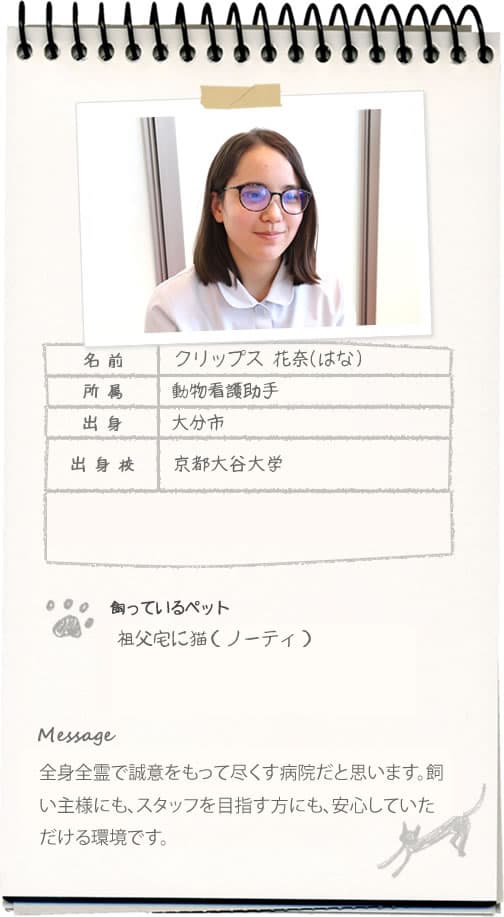 名前 クリップス 花奈(はな)
所属 動物看護助手
出身 大分市
出身校 京都大谷大学
飼っているペット
祖父宅に猫(ノーティ)
Message
全身全霊で誠意をもって尽くす病院だと思います。飼
い主様にも、スタッフを目指す方にも、安心していた
だける環境です。